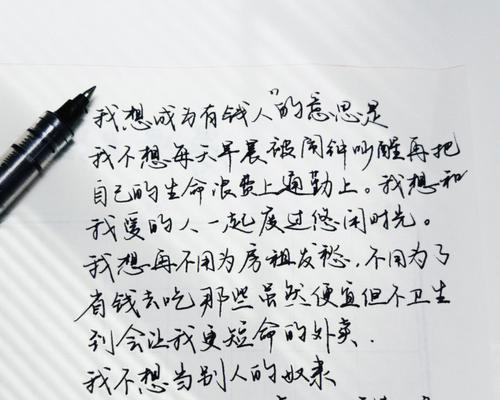 我想成为有钱人"的意思是
我不想每天早晨被闹钟吵醒再把
自己的生命浪费上通勤上。我想和
我爱的人一起度过悠闲时光。
我想再不用为房租发愁,不用为了
省钱去吃那些虽然便宜但不卫生
到会让我更短命的外卖.
我不想当别人的奴隶